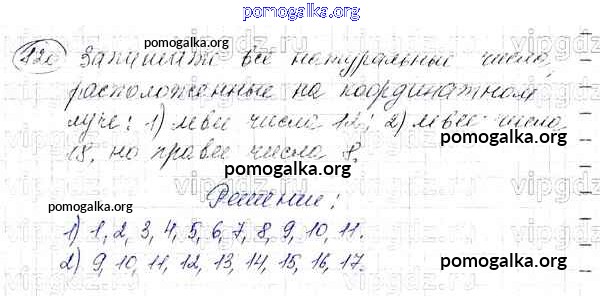 pomogalka.org
120 Запишите все натуральные числа,
pomogalka.org
расположенные на координатном
луче: 1) левее числа 12; 2) левее числа
pomogalka.org
18, но правее числа 8.
pomogalka.org
Решение:
pomogalka.org
1) 1, 2, 3, 4, 5, 6, 7, 8, 9, 10, 11.
2) 9, 10, 11, 12, 13, 14, 15, 16, 17.
pomogalka.org
pomogalka.org